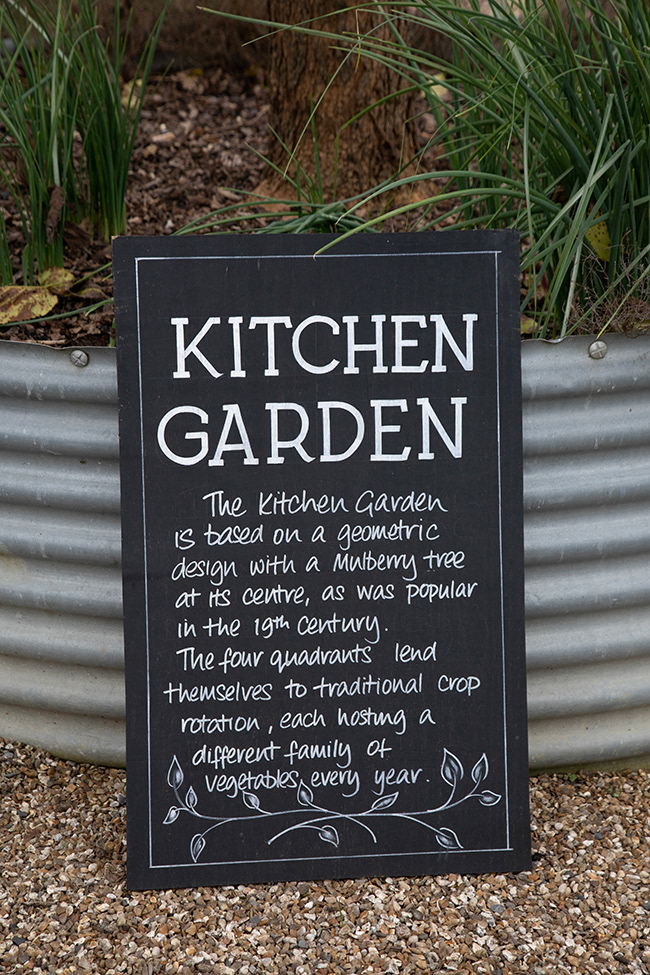 KITCHEN
GARDEN
The Kitchen Garden
is based on a geometric
design with a Mulberry tree
at its centre, as was popular
in the 19th Century.
The four quadrants lend
themselves to traditional crop
rotation, each hosting a
different family of
vegetables every year.